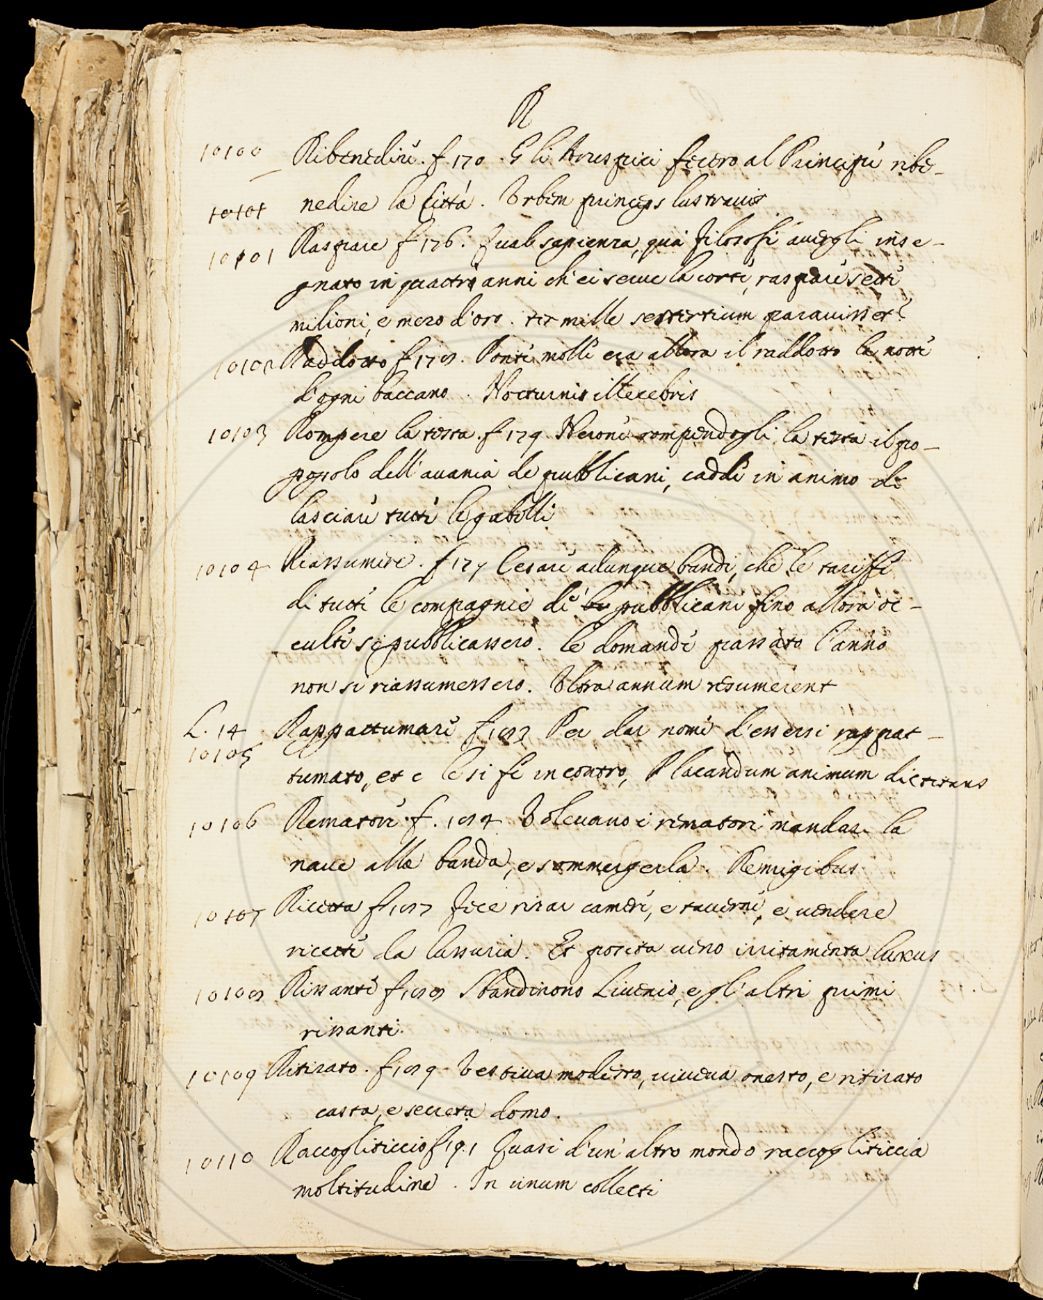 R
10100 Ribenedire. f 170. Gli Aruspici fecero al Principe ribe-
nedire la Città. Urbem princeps lustravit
10101
10101 Raspare f 176. Qual sapienza, quai filosofi avergli inse-
gnato in quattro anni ch'ei serve la corte, raspare sette
milioni, e mezo d'oro. ter mille sestertium paravisset?
10102 Raddotto f 178. Ponte molle era allora il raddotto le notti
d'ogni baccano. Nocturnis illecebris
10103 Rompere la testa. f 179. Nerone rompendogli la testa il po-
popolo dell'avania de pubblicani, cadde in animo di
lasciare tutte le gabelle
10104 Riassumere. f 177 Cesare adunque bandì, che le tariffe
di tutte le compagnie de pubblicani fino allora oc-
culte si pubblicassero. le domande passato l'anno
non si riassumessero. Ultra annum resumerent
L. 14
10105 Rappattumare f 183 Per dar nome d'essersi rappat-
tumato, et e le si fe incontro, Placandum animum dictitans
10106 Rematori f. 184 Volevano i rematori mandar la
nave alla banda, e sommergerla. Remigibus
10107 Ricetta f 187 fece rizar camere, e taverne, e vendere
ricette da lussuria. Et posita veno irritamenta luxus
10108 Rissanti f 188 Sbandirono Livenio, e gl'altri primi
rissanti.
10109 Ritirato. f 189. Vestiva modesto, viveva onesto, e ritirato
casta, e secreta domo.
10110 Raccogliticcio f 191 Quasi d'un altro mondo raccogliticcia
moltitudine. In unum collecti